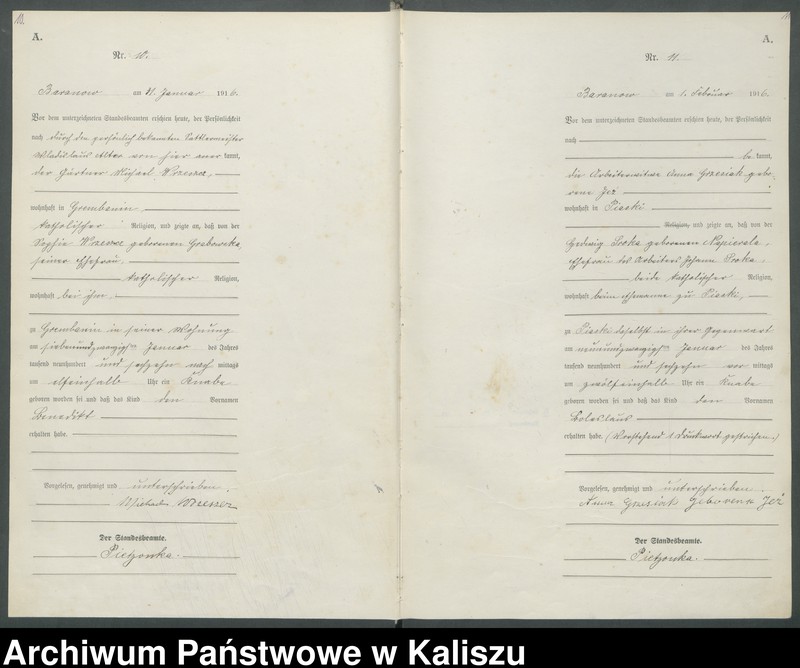 10.
A.
Nr. 10.
Baranow am 31 Januar 1916.
Vor dem unterzeichneten Standesbeamten erschien heute, der Persönlichkeit
nach durch den persönlich bekannten Sattlermeister
Wladislaus Alter von hier aner kannt,
der Gärtner Michael Wrzeszcz,
wohnhaft in Grembanin
katholischer Religion, und zeigte an, daß von der
Sophie Wrzeszcz geborenen Grabowska,
seiner Ehefrau,
katholischer Religion,
wohnhaft bei ihm
zu Grembanin in seiner Wohnung
am siebenundzwanzigsten Januar des Jahres
tausend neunhundert und sechzehn nach mittags
um elfeinhalb Uhr ein Knabe
geboren worden sei und daß das Kind den Vornamen
Benedikt
erhalten habe.
Vorgelesen, genehmigt und unterschrieben.
Der Standesbeamte.
Pietzonka.
A.
Nr. 11.
Baranow am 1. Februar 1916.
Vor dem unterzeichneten Standesbeamten erschien heute, der Persönlichkeit
nach
be kannt,
die Arbeiterwitwe Anna Grzesiak gebo-
rene Jeż
wohnhaft in Piaski
Religion, und zeigte an, daß von der
Hedwig Sroka geborenen Napierala,
Ehefrau des Arbeiters Johann Sroka,
beide katholischer Religion,
wohnhaft beim Ehemanne zu Piaski,
zu Piaski daselbst in ihrer Gegenwart
am neunundzwanzigsten Januar des Jahres
tausend neunhundert und sechzehn vor mittags
um zwölfeinhalb Uhr ein Knabe
geboren worden sei und daß das Kind den Vornamen
Boleslaus
erhalten habe. (Vorstehend 1 Druckwort gestrichen.)
Vorgelesen, genehmigt und unterschrieben.
Anna Grzesiak geborena Jeż
Der Standesbeamte.
Pietzonka.
Archiwum Państwowe w Kaliszu